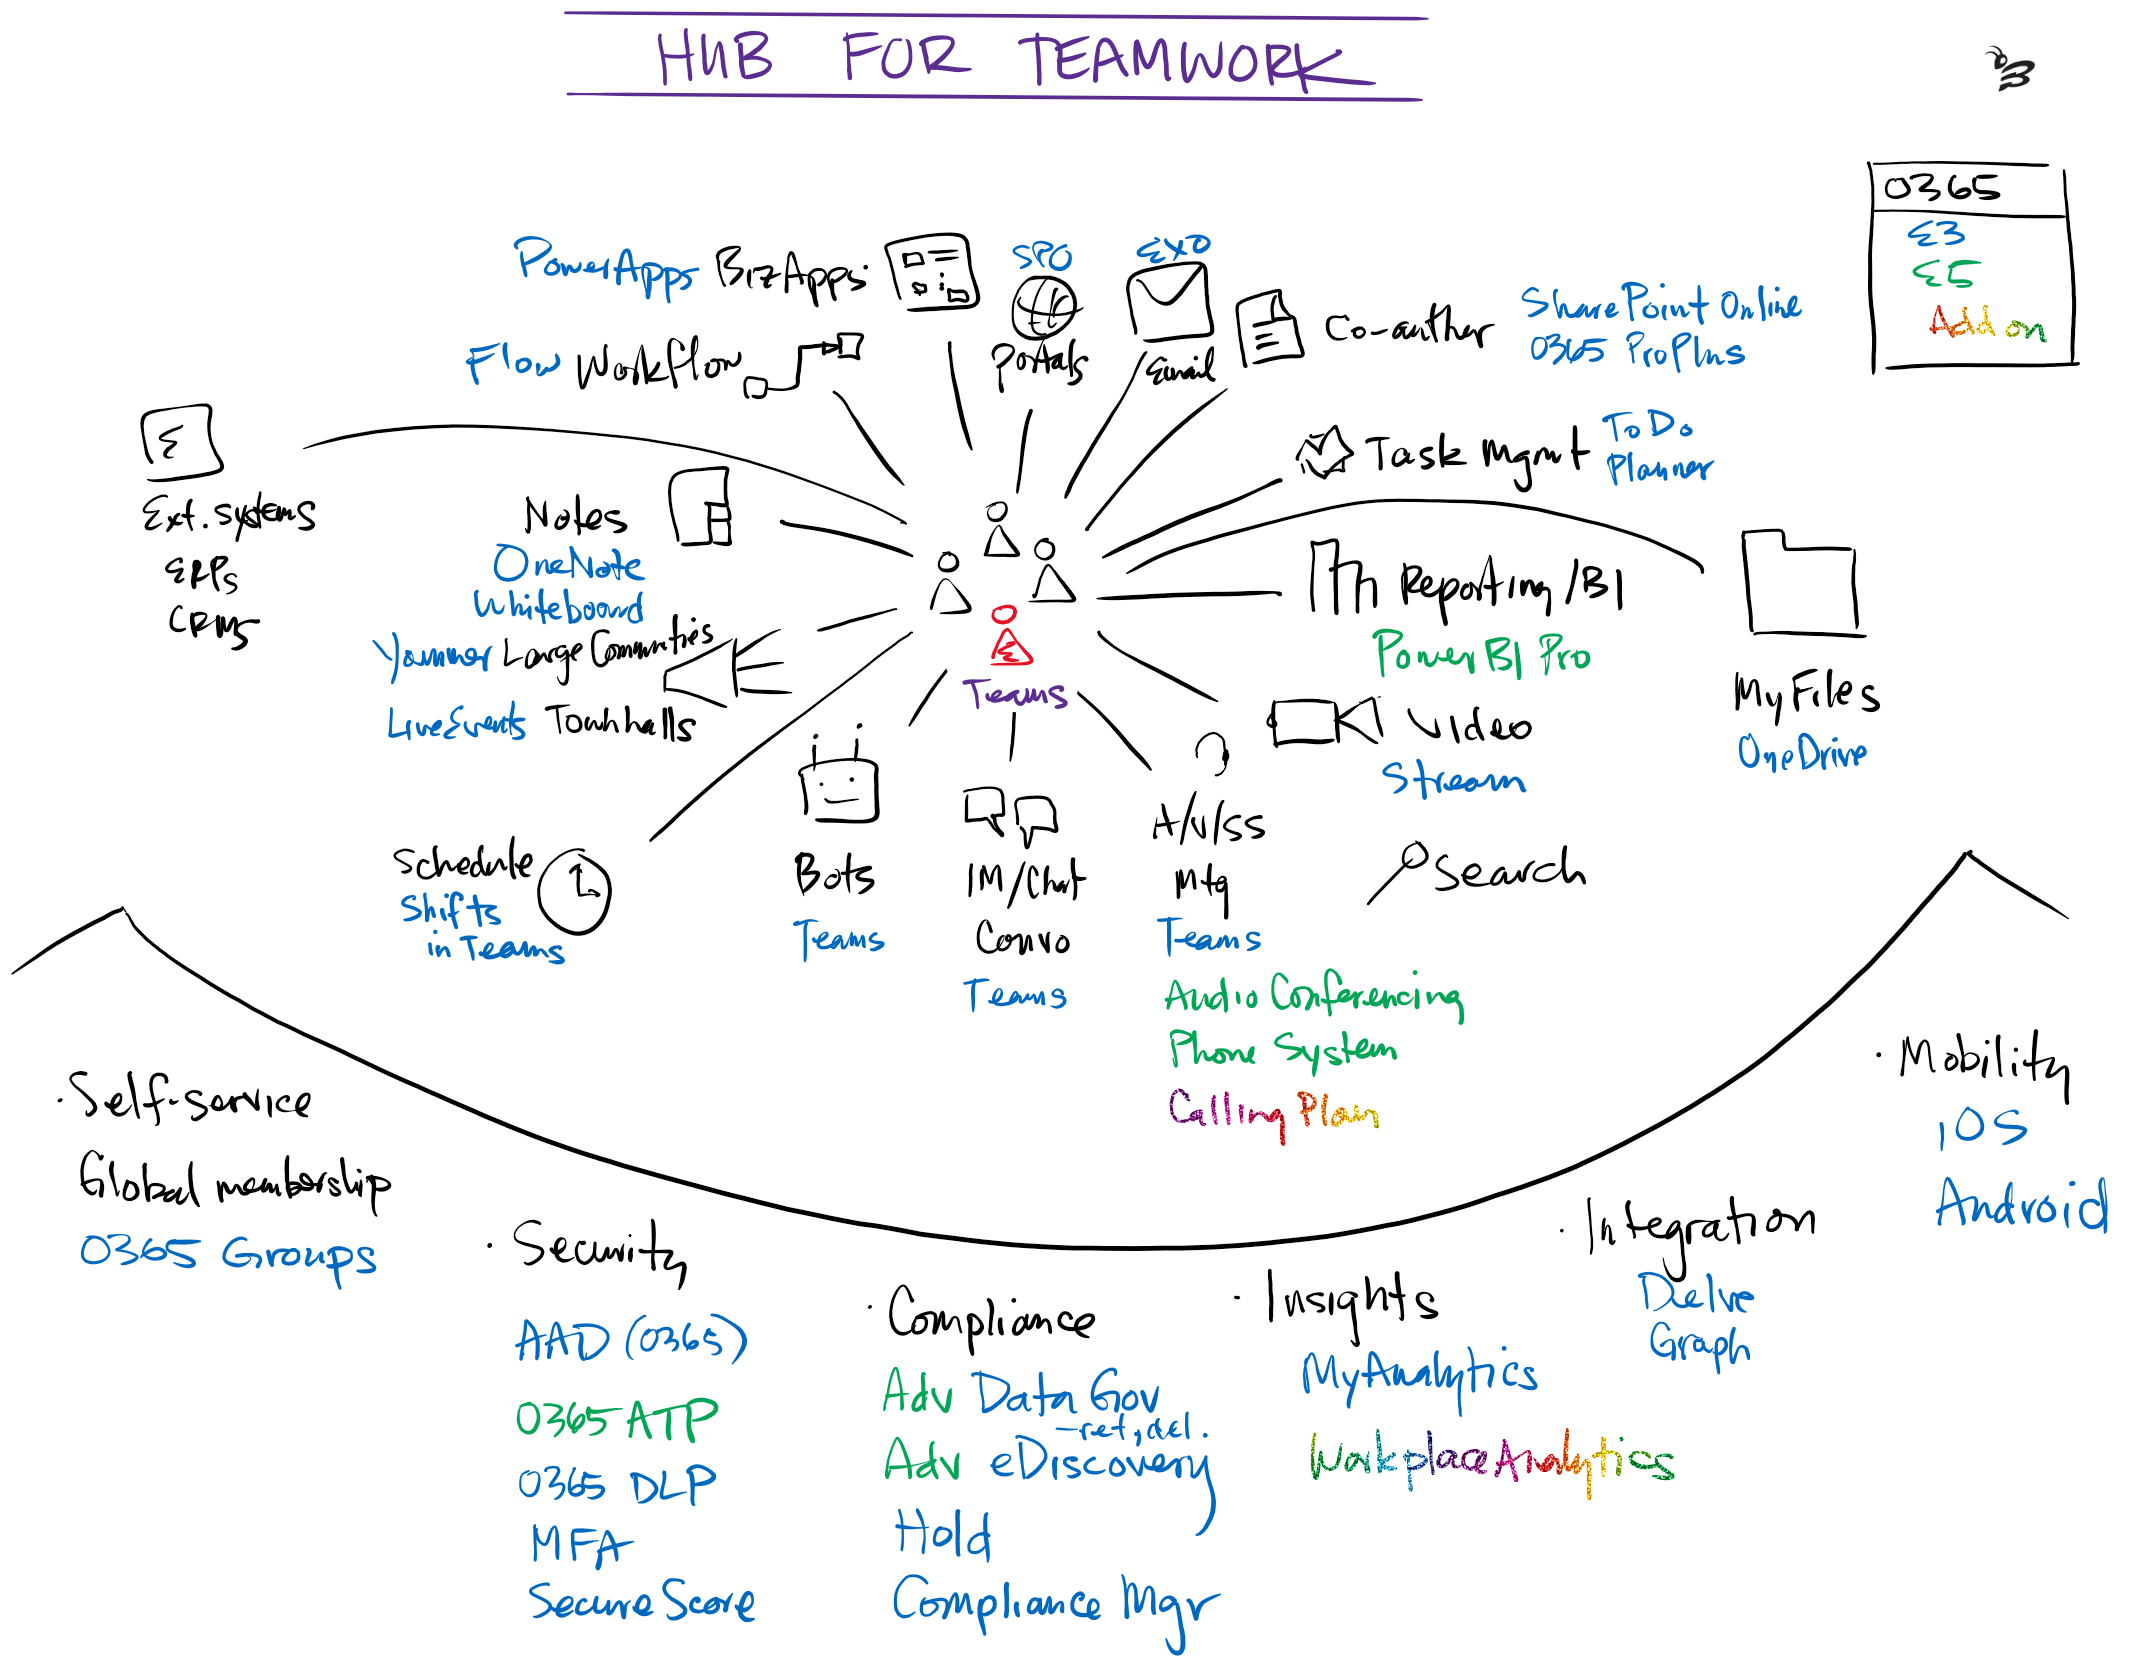 HUB FOR TEAMWORK
O365
E3
E5
Add on
PowerApps BizApps
SPO
Portals
EXO
Email
Co-author
SharePoint Online
O365 ProPlus
Flow Workflow
Task Mgmt
ToDo
Planner
E
Ext. systems
ERPs
CRMs
Notes
OneNote
Whiteboard
Yammer Large Communities
LiveEvents Townhalls
E
Teams
Reporting/BI
PowerBI Pro
Video
Stream
MyFiles
OneDrive
Schedule
Shifts
in Teams
Bots
Teams
IM/Chat
Convo
Teams
A/V/SS
Mtg
Teams
Audio Conferencing
Phone System
Calling Plan
Search
· Self-service
Global membership
O365 Groups
· Security
AAD (O365)
O365 ATP
O365 DLP
MFA
SecureScore
· Compliance
Adv Data Gov
- ret, del.
Adv eDiscovery
Hold
Compliance Mgr
· Insights
MyAnalytics
WorkplaceAnalytics
· Integration
Delve
Graph
· Mobility
iOS
Android